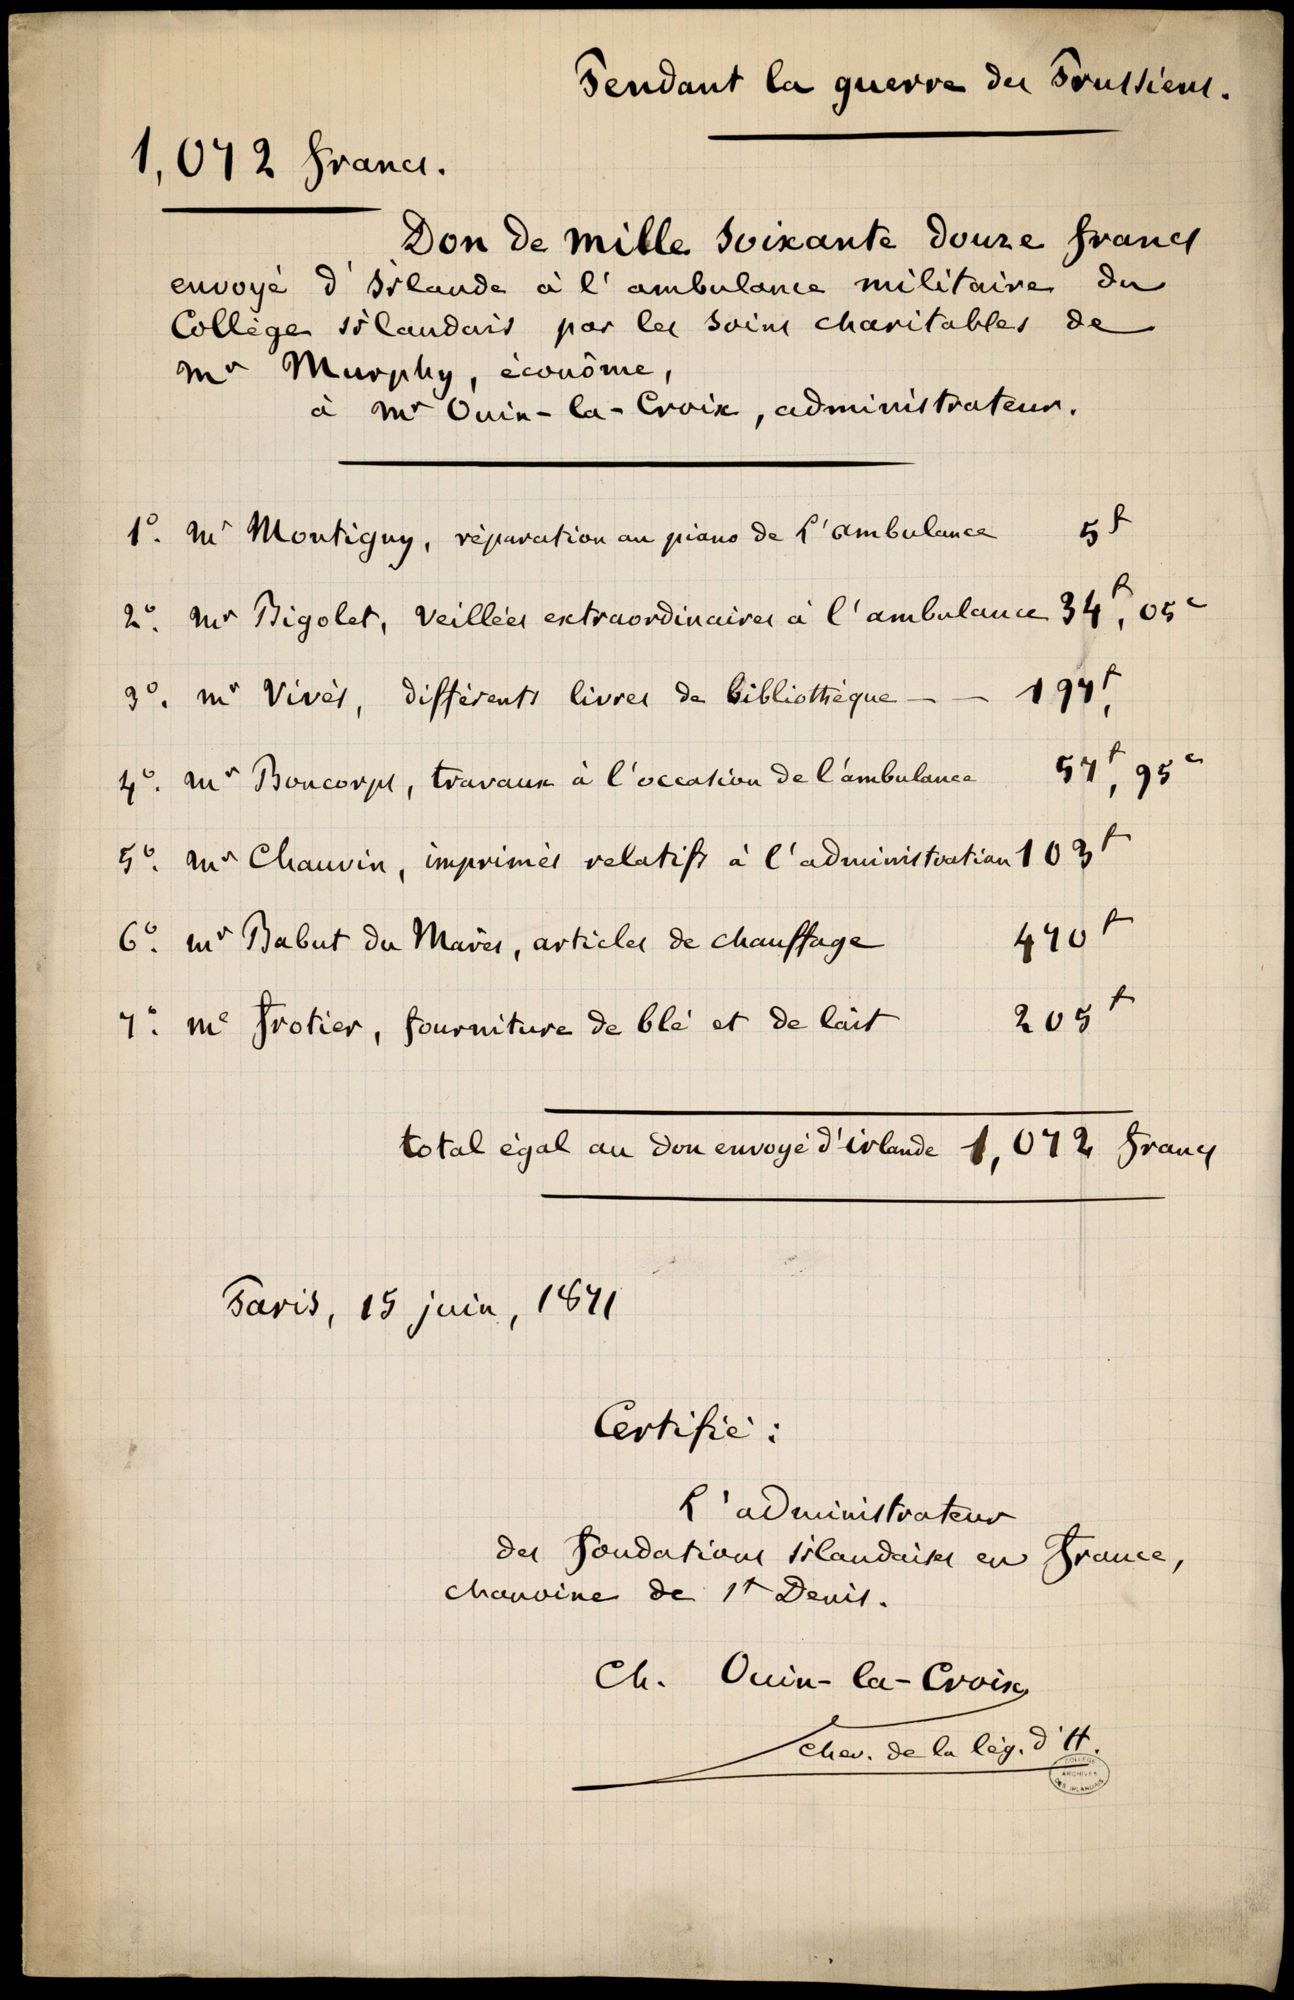 Pendant la guerre des Prussiens.
1,072 francs.
Don de mille soixante douze francs
envoyé d'irlande à l'ambulance militaire du
Collège irlandais par les soins charitables de
mr Murphy, économe,
à mr Ouin-la-Croix, administrateur.
1°. mr Montigny, réparation au piano de l'ambulance 5f
2°. mr Bigolet, veillées extraordinaires à l'ambulance 34f, 05c
3°. mr Vivès, différents livres de bibliothèque — — 197f,
4°. mr Boncorps, travaux à l'occasion de l'ambulance 57f, 95c
5°. mr Chauvin, imprimés relatifs à l'administration 103f
6°. mr Babut du Marès, articles de chauffage 470f
7°. me Frotier, fourniture de blé et de lait 205f
total égal au don envoyé d'irlande 1,072 francs
Paris, 15 juin, 1871
Certifié :
L'administrateur
des fondations irlandaises en France,
chanoine de st Denis.
Ch. Ouin-la-Croix
chev. de la lég. d'H.
COLLEGE
ARCHIVES
DES IRLANDAIS